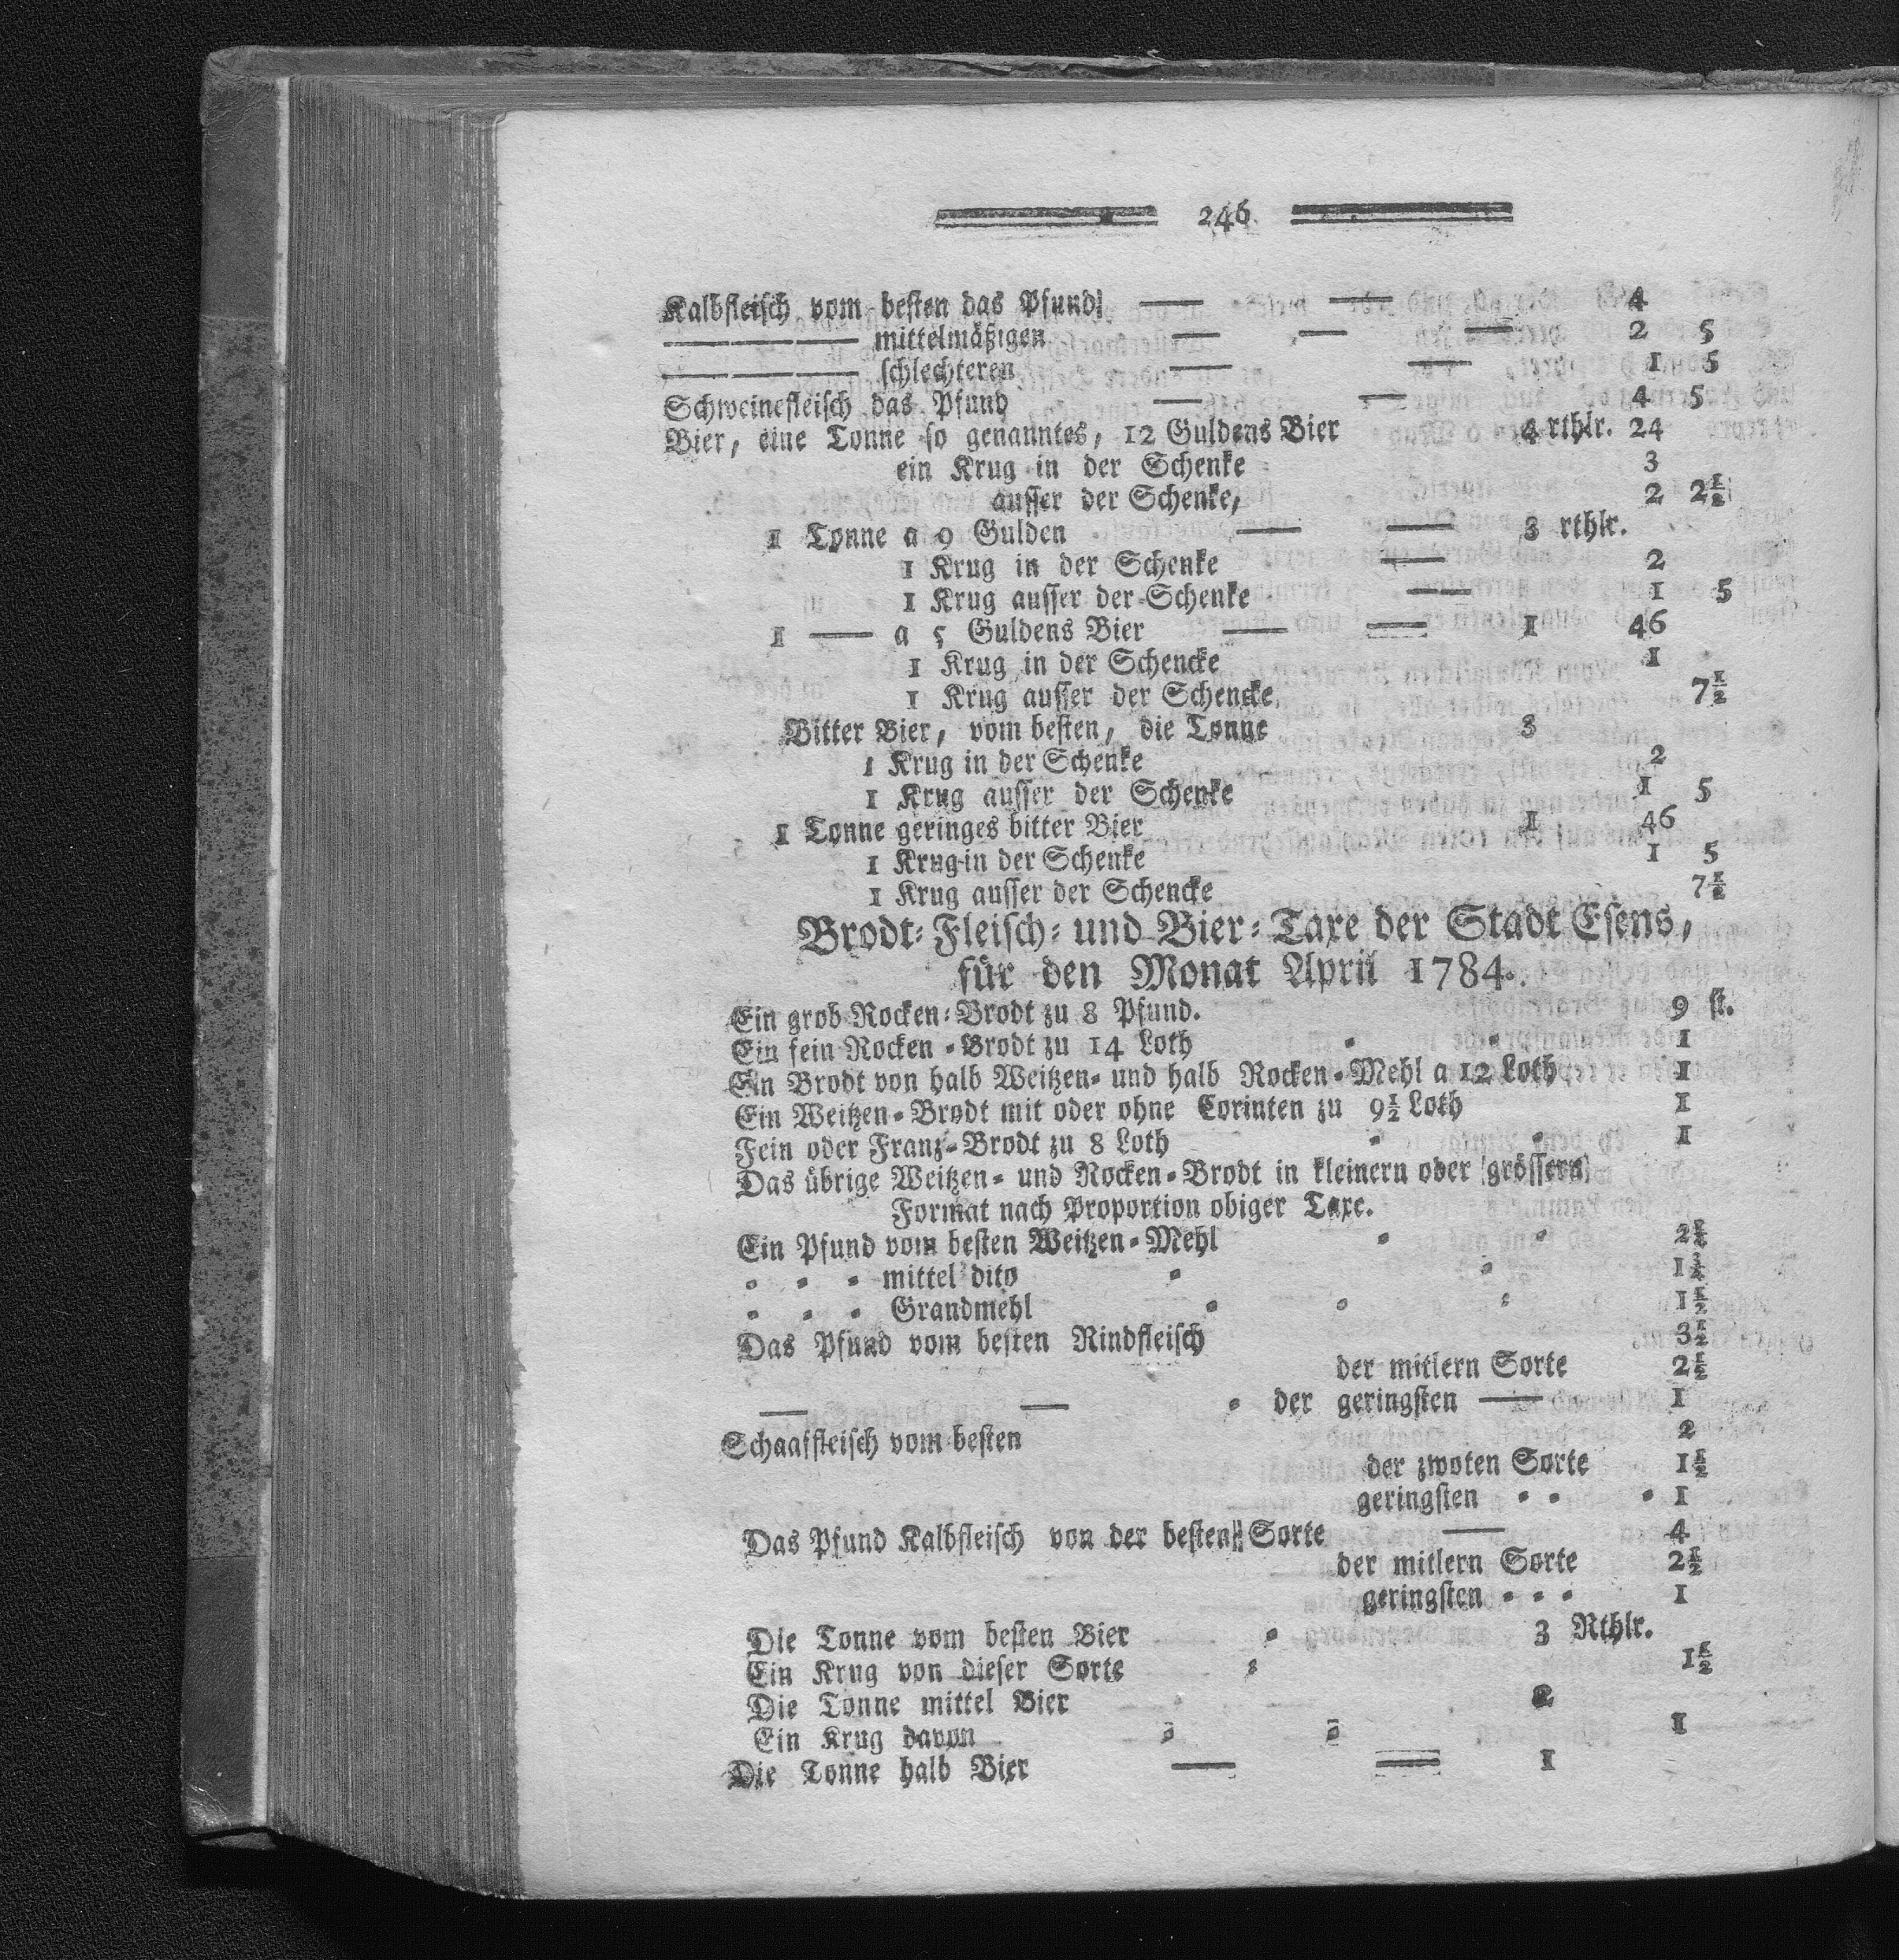 246
Kalbfleisch vom besten das Pfund — — 4
— — — mittelmäßigen — — — 2 5
— — — schlechteren — — 1 5
Schweinefleisch das Pfund — — 4 5
Bier, eine Tonne so genanntes, 12 Guldens Bier 4 rthlr. 24
ein Krug in der Schenke 3
ausser der Schenke, 2 2½
1 Tonne a 9 Gulden — — 3 rthlr.
1 Krug in der Schenke — 2
1 Krug ausser der Schenke — 1 5
1 — a 5 Guldens Bier — — 1 46
1 Krug in der Schencke 1
1 Krug ausser der Schencke 7½
Bitter Bier, vom besten, die Tonne 3
1 Krug in der Schenke 2
1 Krug ausser der Schenke 1 5
1 Tonne geringes bitter Bier 1 46
1 Krug in der Schenke 1 5
1 Krug ausser der Schencke 7½
Brodt-Fleisch- und Bier-Taxe der Stadt Esens,
für den Monat April 1784.
Ein grob Rocken-Brodt zu 8 Pfund. 9 st.
Ein fein Rocken-Brodt zu 14 Loth 1
Ein Brodt von halb Weitzen- und halb Rocken-Mehl a 12 Loth 1
Ein Weitzen-Brodt mit oder ohne Corinten zu 9½ Loth 1
Fein oder Franz-Brodt zu 8 Loth 1
Das übrige Weitzen- und Rocken-Brodt in kleinern oder grössern
Format nach Proportion obiger Taxe.
Ein Pfund vom besten Weitzen-Mehl 2
mittel dito 1
Grandmehl 1½
Das Pfund vom besten Rindfleisch 3½
der mitlern Sorte 2½
— — der geringsten — 1
Schaaffleisch vom besten 2
der zwoten Sorte 1½
geringsten 1
Das Pfund Kalbfleisch von der besten Sorte — 4
der mitlern Sorte 2½
geringsten 1
Die Tonne vom besten Bier 3 Rthlr.
Ein Krug von dieser Sorte 1½
Die Tonne mittel Bier 2
Ein Krug davon 1
Die Tonne halb Bier — — 1